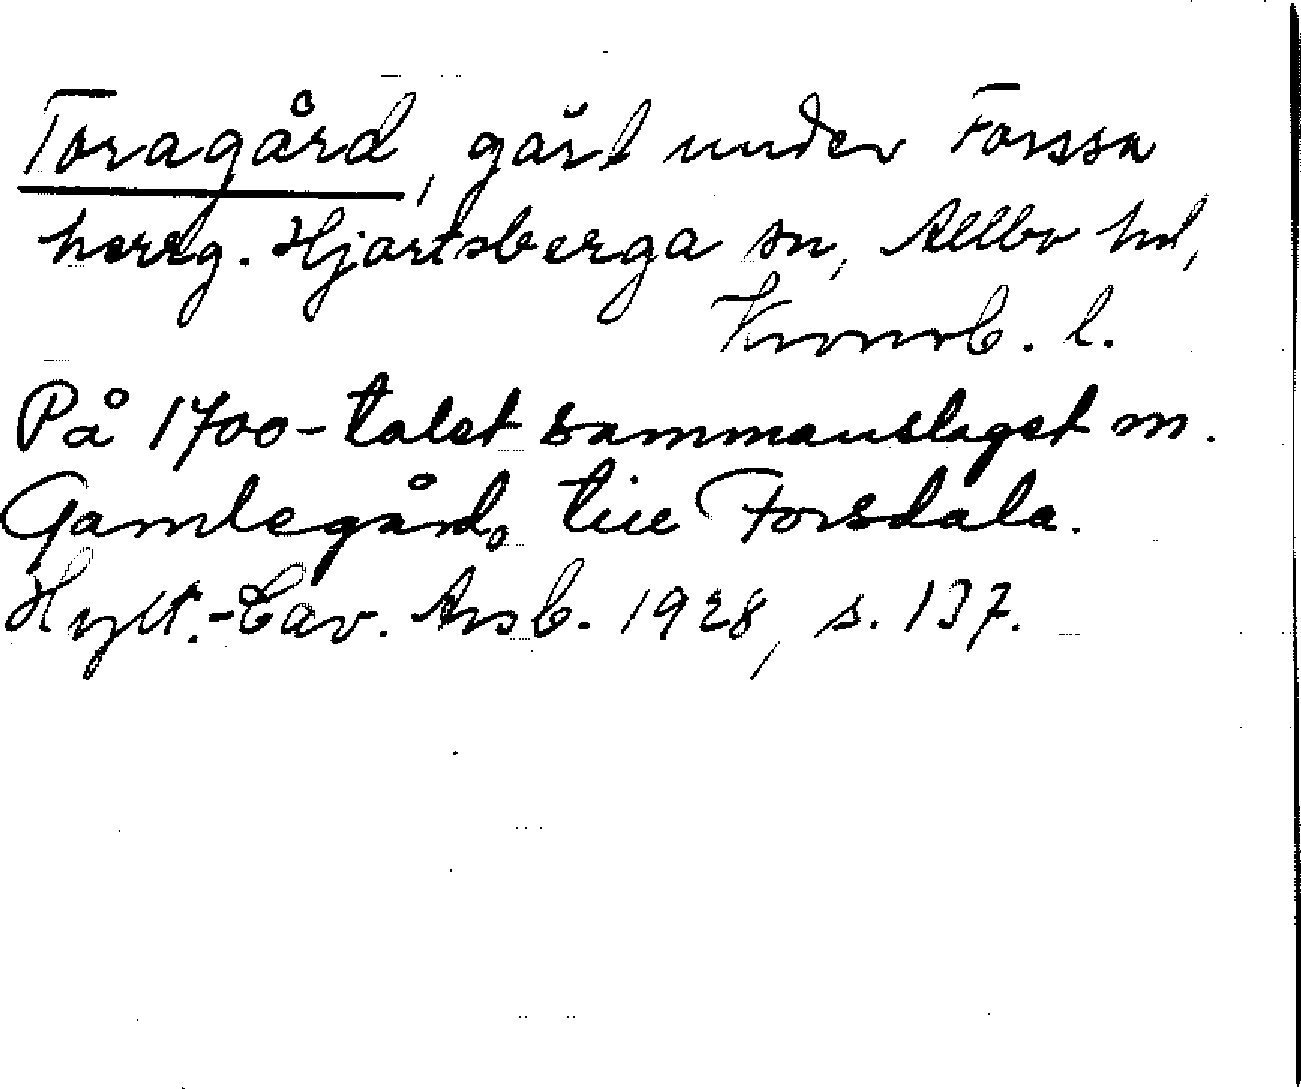 Toragård, gård under Forssa
herrg. Hjortsberga sn, Allbo hd,
Kronob. l.
På 1700-talet sammanslaget m.
Gamlegård, till Forsdala.
Hylt.-Cav. Årsb. 1928, s. 137.